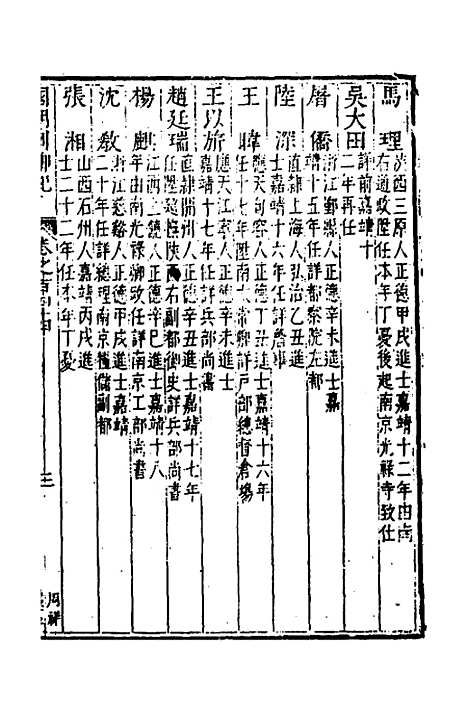 馬 理
陝西三原人正德甲戌進士嘉靖十二年由南
右通政陞任本年丁憂後起南京光祿寺致仕
吳大田
詳前嘉靖十
二年再任
屠 僑
浙江鄞縣人正德辛未進士嘉
靖十五年任詳都察院左都
陸 深
直隸上海人弘治乙丑進
士嘉靖十六年任詳詹事
王 暐
應天句容人正德丁丑進士嘉靖十六年
任十七年陞南太常卿詳戶部總督倉場
王以旂
應天江寧人正德辛未進士
嘉靖十七年任詳兵部尚書
趙廷瑞
直隸開州人正德辛丑進士嘉靖十七年
任陞陝西右副都御史詳兵部尚書
楊 麒
江西上饒人正德辛巳進士嘉靖十八
年由南光祿卿改任詳南京工部尚書
沈 教
浙江慈谿人正德甲戌進士嘉靖
二十年任詳總理南京糧儲副都
張 相
山西石州人嘉靖丙戌進
士二十二年任本年丁憂
國朝列卿紀
卷之百四十四
三